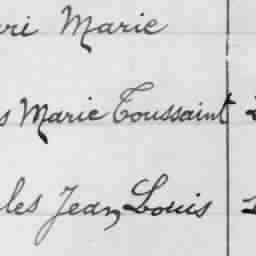 ri Marie
s Marie Toussaint
les Jean Louis